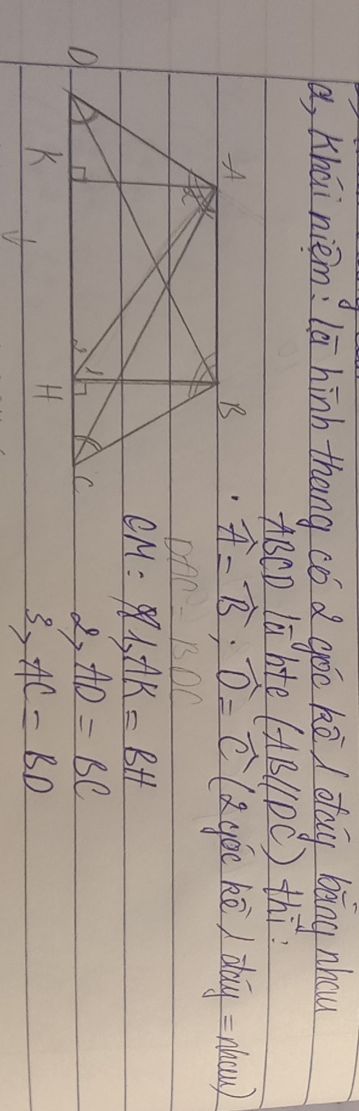 a, Khái niệm: là hình thang có 2 góc kề 1 đáy bằng nhau
ABCD là htc (AB//DC) thì:
A B
• Â = B̂ ; D̂ = Ĉ (2 góc kề 1 đáy = nhau)
DAC = BDC
CM: 1, AK = BH
2, AD = BC
3, AC = BD
D K H C
2 1